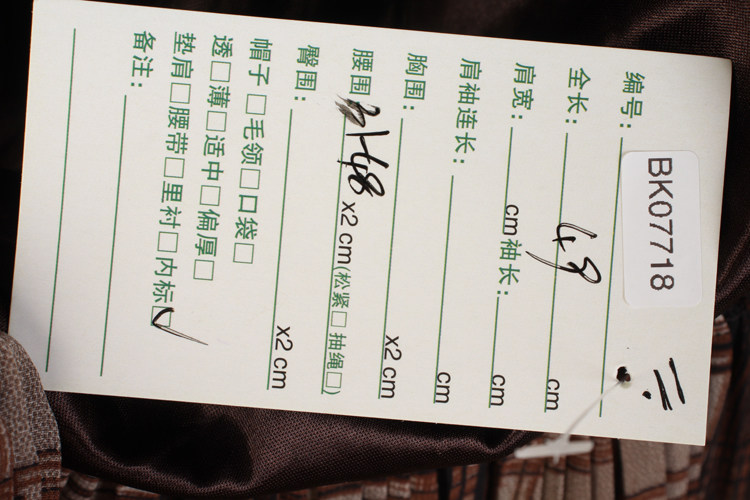 编号: BK07718
全长: 49 cm
肩宽: cm 袖长: cm
肩袖连长: cm
胸围: x2 cm
腰围: 48 x2 cm(松紧□ 抽绳□)
臀围: x2 cm
帽子□毛领□口袋□
透□薄□适中□偏厚□
垫肩□腰带□里衬□内标☑
备注: